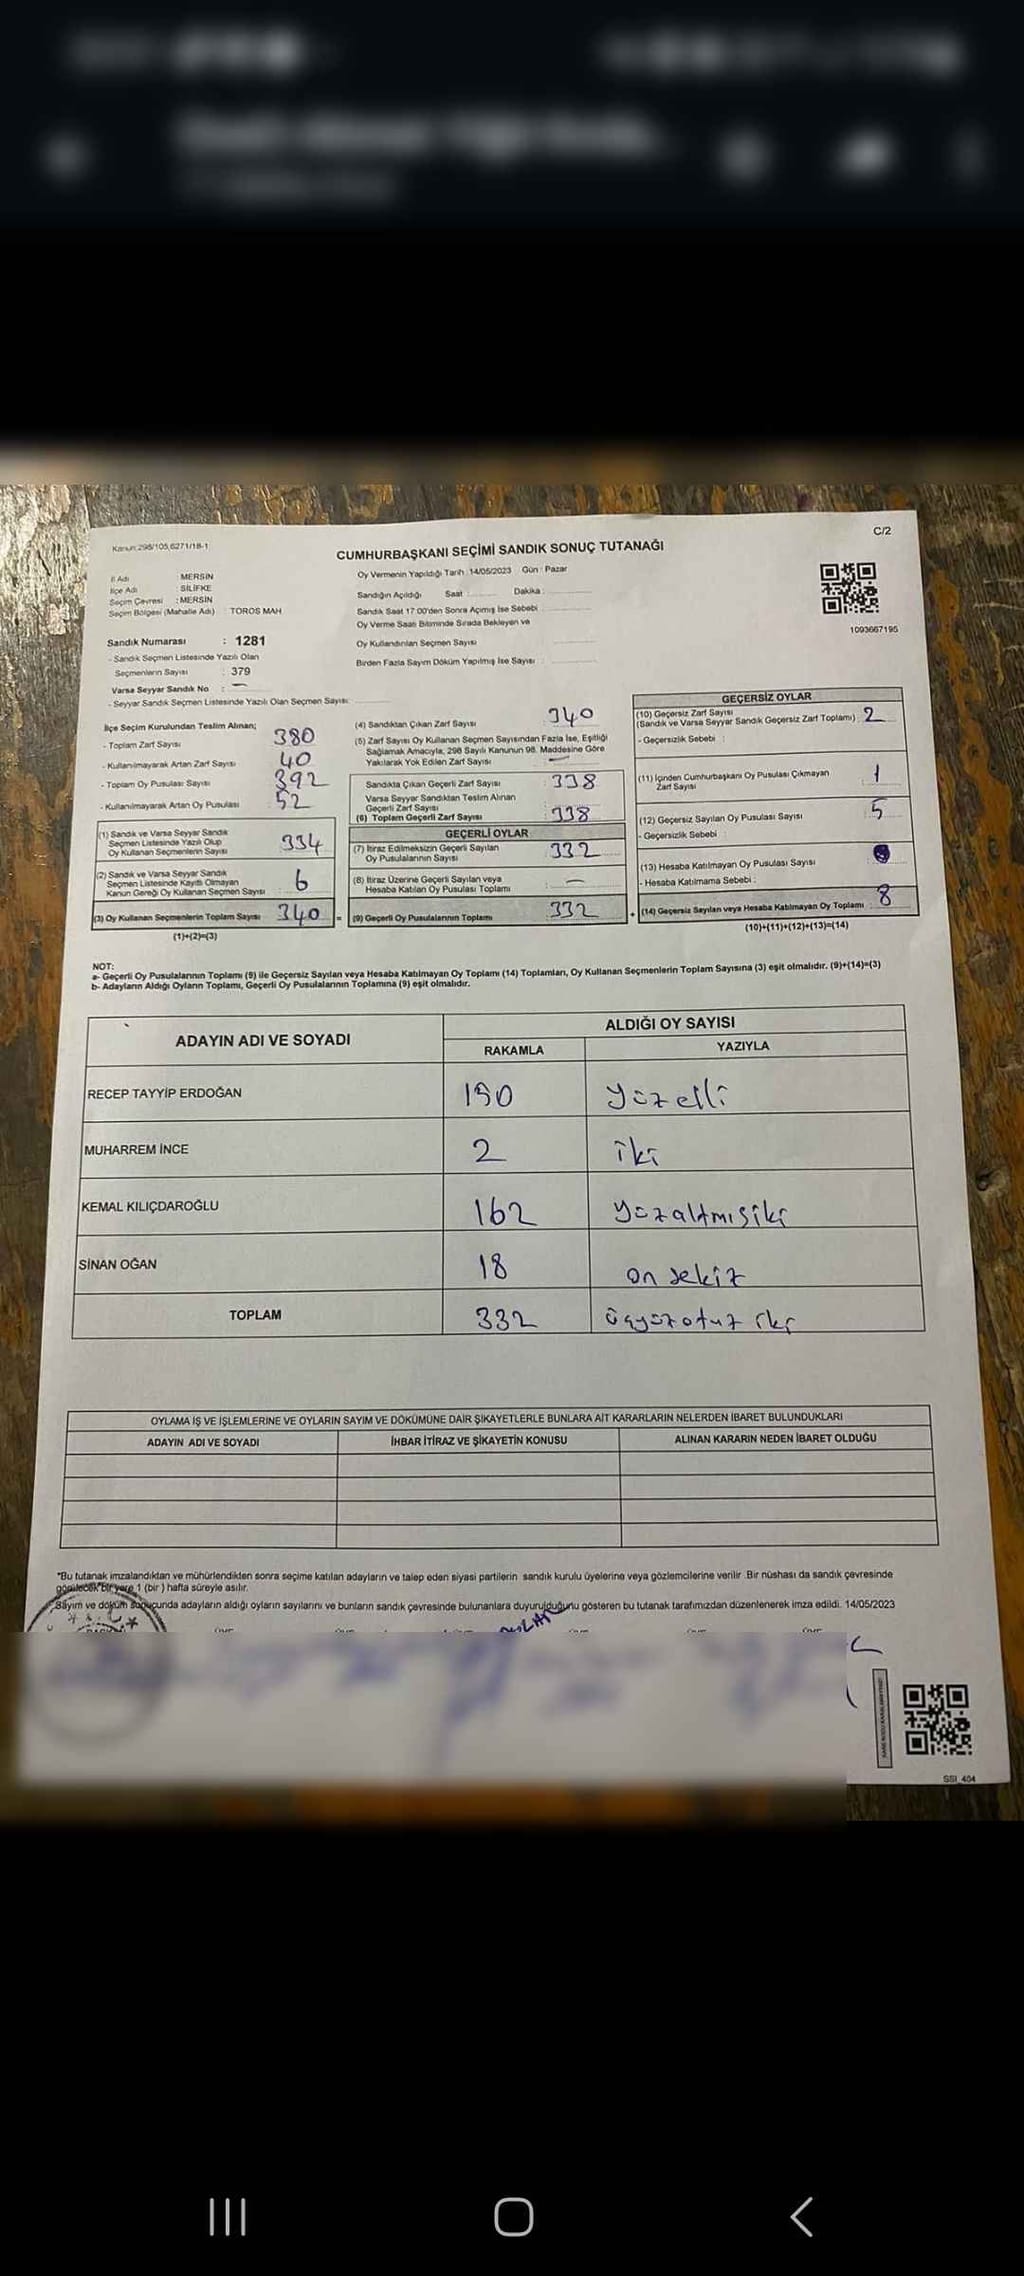 C/2
Kanun:298/105,6271/18-1
CUMHURBAŞKANI SEÇİMİ SANDIK SONUÇ TUTANAĞI
İl Adı MERSİN
İlçe Adı SİLİFKE
Seçim Çevresi : MERSİN
Seçim Bölgesi (Mahalle Adı) : TOROS MAH
Sandık Numarası : 1281
- Sandık Seçmen Listesinde Yazılı Olan
Seçmenlerin Sayısı : 379
Varsa Seyyar Sandık No : —
- Seyyar Sandık Seçmen Listesinde Yazılı Olan Seçmen Sayısı:
Oy Vermenin Yapıldığı Tarih :14/05/2023 Gün : Pazar
Sandığın Açıldığı Saat Dakika :
Sandık Saat 17:00'den Sonra Açımış İse Sebebi
Oy Verme Saati Bitiminde Sırada Bekleyen ve
Oy Kullandırılan Seçmen Sayısı
Birden Fazla Sayım Döküm Yapılmış İse Sayısı :
1093667195
İlçe Seçim Kurulundan Teslim Alınan;
- Toplam Zarf Sayısı 380
- Kullanılmayarak Artan Zarf Sayısı 40
- Toplam Oy Pusulası Sayısı 392
- Kullanılmayarak Artan Oy Pusulası 52
(1) Sandık ve Varsa Seyyar Sandık
Seçmen Listesinde Yazılı Olup
Oy Kullanan Seçmenlerin Sayısı 334
(2) Sandık ve Varsa Seyyar Sandık
Seçmen Listesinde Kayıtlı Olmayan
Kanun Gereği Oy Kullanan Seçmen Sayısı 6
(3) Oy Kullanan Seçmenlerin Toplam Sayısı 340 =
(1)+(2)=(3)
(4) Sandıktan Çıkan Zarf Sayısı 340
(5) Zarf Sayısı Oy Kullanan Seçmen Sayısından Fazla İse, Eşitliği
Sağlamak Amacıyla, 298 Sayılı Kanunun 98. Maddesine Göre
Yakılarak Yok Edilen Zarf Sayısı —
Sandıkta Çıkan Geçerli Zarf Sayısı : 338
Varsa Seyyar Sandıktan Teslim Alınan
Geçerli Zarf Sayısı
(6) Toplam Geçerli Zarf Sayısı : 338
GEÇERLİ OYLAR
(7) İtiraz Edilmeksizin Geçerli Sayılan
Oy Pusulalarının Sayısı : 332
(8) İtiraz Üzerine Geçerli Sayılan veya
Hesaba Katılan Oy Pusulası Toplamı : —
(9) Geçerli Oy Pusulalarının Toplamı 332 +
GEÇERSİZ OYLAR
(10) Geçersiz Zarf Sayısı
(Sandık ve Varsa Seyyar Sandık Geçersiz Zarf Toplamı) 2
- Geçersizlik Sebebi :
(11) İçinden Cumhurbaşkanı Oy Pusulası Çıkmayan
Zarf Sayısı : 1
(12) Geçersiz Sayılan Oy Pusulası Sayısı : 5
- Geçersizlik Sebebi :
(13) Hesaba Katılmayan Oy Pusulası Sayısı
- Hesaba Katılmama Sebebi :
(14) Geçersiz Sayılan veya Hesaba Katılmayan Oy Toplamı : 8
(10)+(11)+(12)+(13)=(14)
NOT:
a- Geçerli Oy Pusulalarının Toplamı (9) ile Geçersiz Sayılan veya Hesaba Katılmayan Oy Toplamı (14) Toplamları, Oy Kullanan Seçmenlerin Toplam Sayısına (3) eşit olmalıdır. (9)+(14)=(3)
b- Adayların Aldığı Oyların Toplamı, Geçerli Oy Pusulalarının Toplamına (9) eşit olmalıdır.
ADAYIN ADI VE SOYADI ALDIĞI OY SAYISI
RAKAMLA YAZIYLA
RECEP TAYYİP ERDOĞAN 150 yüzelli
MUHARREM İNCE 2 iki
KEMAL KILIÇDAROĞLU 162 yüzaltmışiki
SİNAN OĞAN 18 on sekiz
TOPLAM 332 üçyüzotuz iki
OYLAMA İŞ VE İŞLEMLERİNE VE OYLARIN SAYIM VE DÖKÜMÜNE DAİR ŞİKAYETLERLE BUNLARA AİT KARARLARIN NELERDEN İBARET BULUNDUKLARI
ADAYIN ADI VE SOYADI İHBAR İTİRAZ VE ŞİKAYETİN KONUSU ALINAN KARARIN NEDEN İBARET OLDUĞU
*Bu tutanak imzalandıktan ve mühürlendikten sonra seçime katılan adayların ve talep eden siyasi partilerin sandık kurulu üyelerine veya gözlemcilerine verilir .Bir nüshası da sandık çevresinde
görülecek bir yere 1 (bir ) hafta süreyle asılır.
Sayım ve döküm sonucunda adayların aldığı oyların sayılarını ve bunların sandık çevresinde bulunanlara duyurulduğunu gösteren bu tutanak tarafımızdan düzenlenerek imza edildi. 14/05/2023
SSI_404